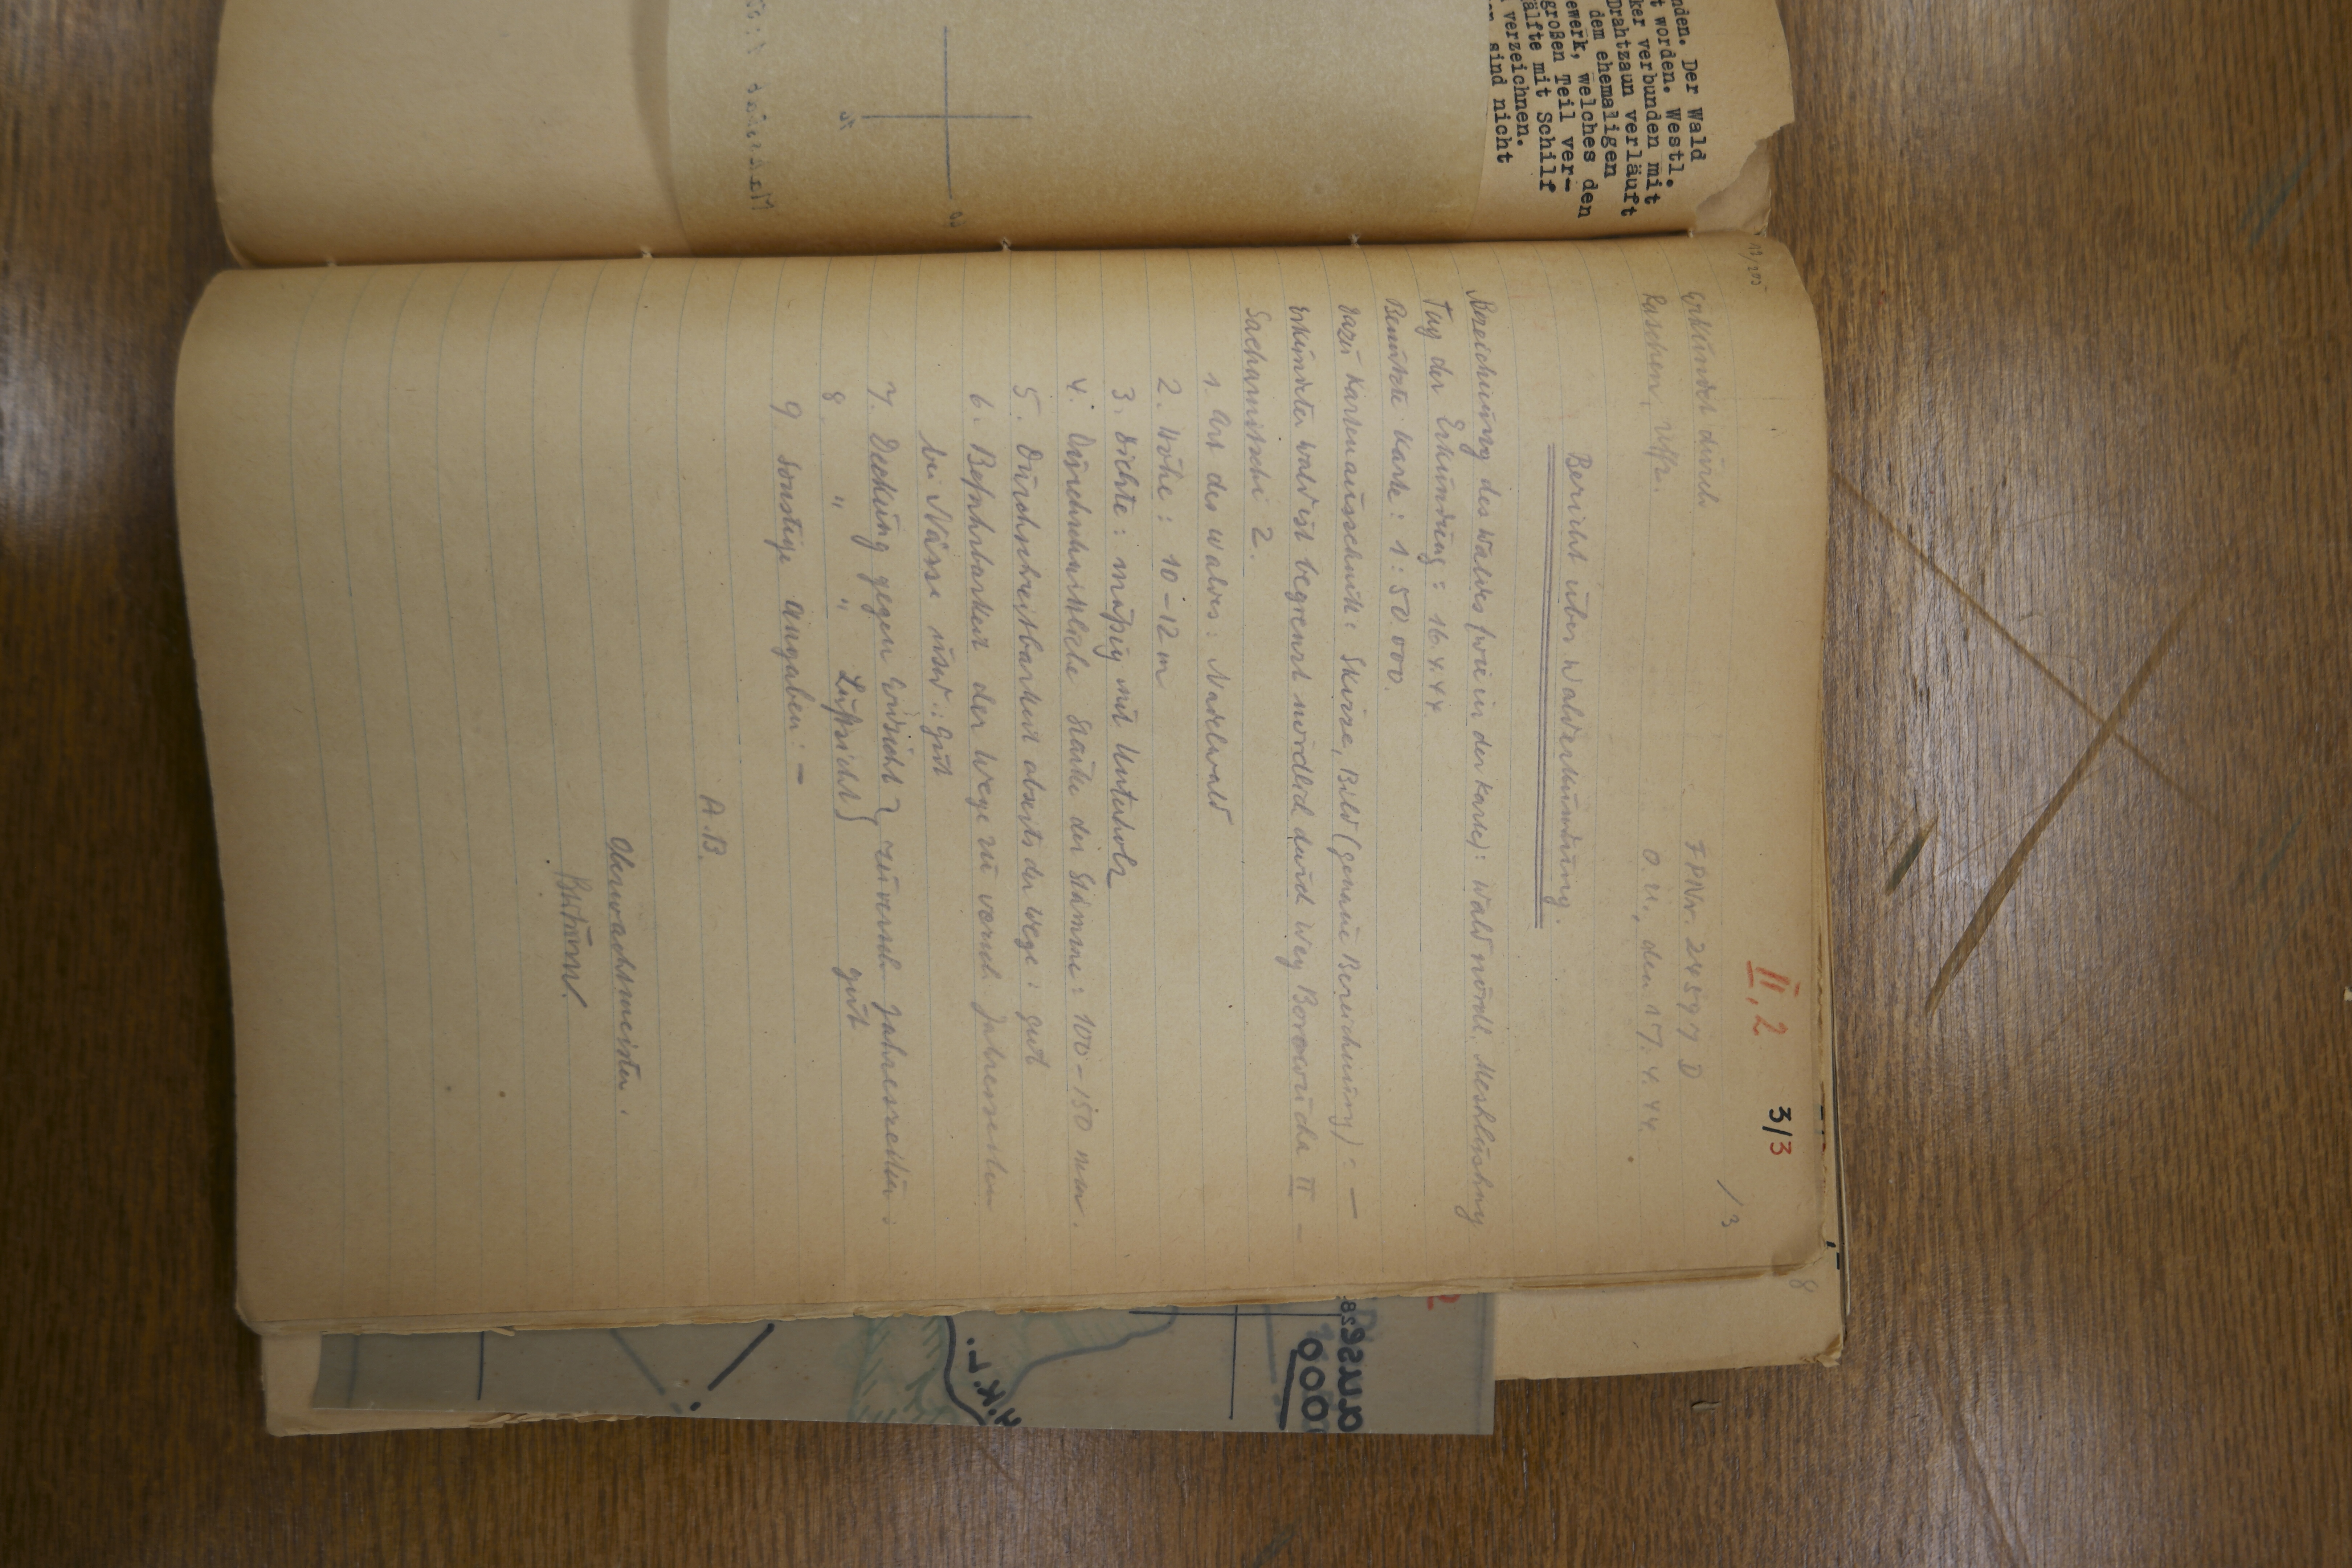 nden. Der Wald
t worden. Westl.
ker verbunden mit
Drahtzaun verläuft
dem ehemaligen
ewerk, welches den
großen Teil ver-
älfte mit Schilf
verzeichnen.
sind nicht
II, 2 3/3
/3
8
Erkundet durch FPNr. 24597 D
Raschen, Uffz. O.U., den 17.4.44.
Bericht über Walderkundung.
Bezeichnung des Waldes (wie in der Karte): Wald nördl.
Tag der Erkundung: 16.4.44.
Benützte Karte: 1:50 000.
dazu Kartenausschnitt: Skizze, Bild (genaue Bezeichnung): —
erkundeter Wald ist begrenzt nördlich durch Weg II –
2.
1. Art des Waldes: Nadelwald
2. Höhe: 10-12 m
3. Dichte: mäßig mit Unterholz
4. Durchschnittliche Stärke der Stämme: 100-150 mm.
5. Durchschreitbarkeit abseits der Wege: gut
6. Befahrbarkeit der Wege zu versch. Jahreszeiten
bei Nässe usw.: gut
7. Deckung gegen Erdsicht } zu versch. Jahreszeiten:
8. " " Luftsicht } gut
9. Sonstige Angaben: –
A.B.
Oberwachtmeister.
000
H.K.L.